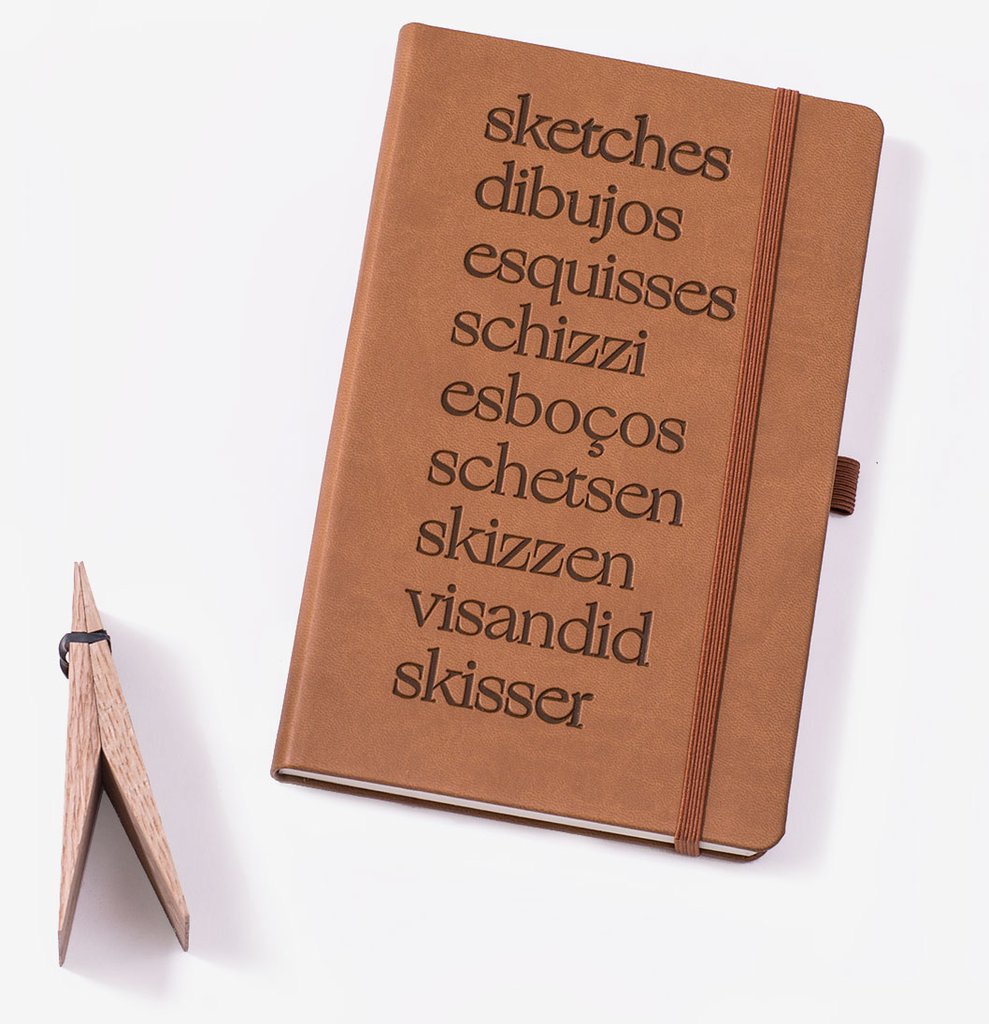 sketches
dibujos
esquisses
schizzi
esboços
schetsen
skizzen
visandid
skisser